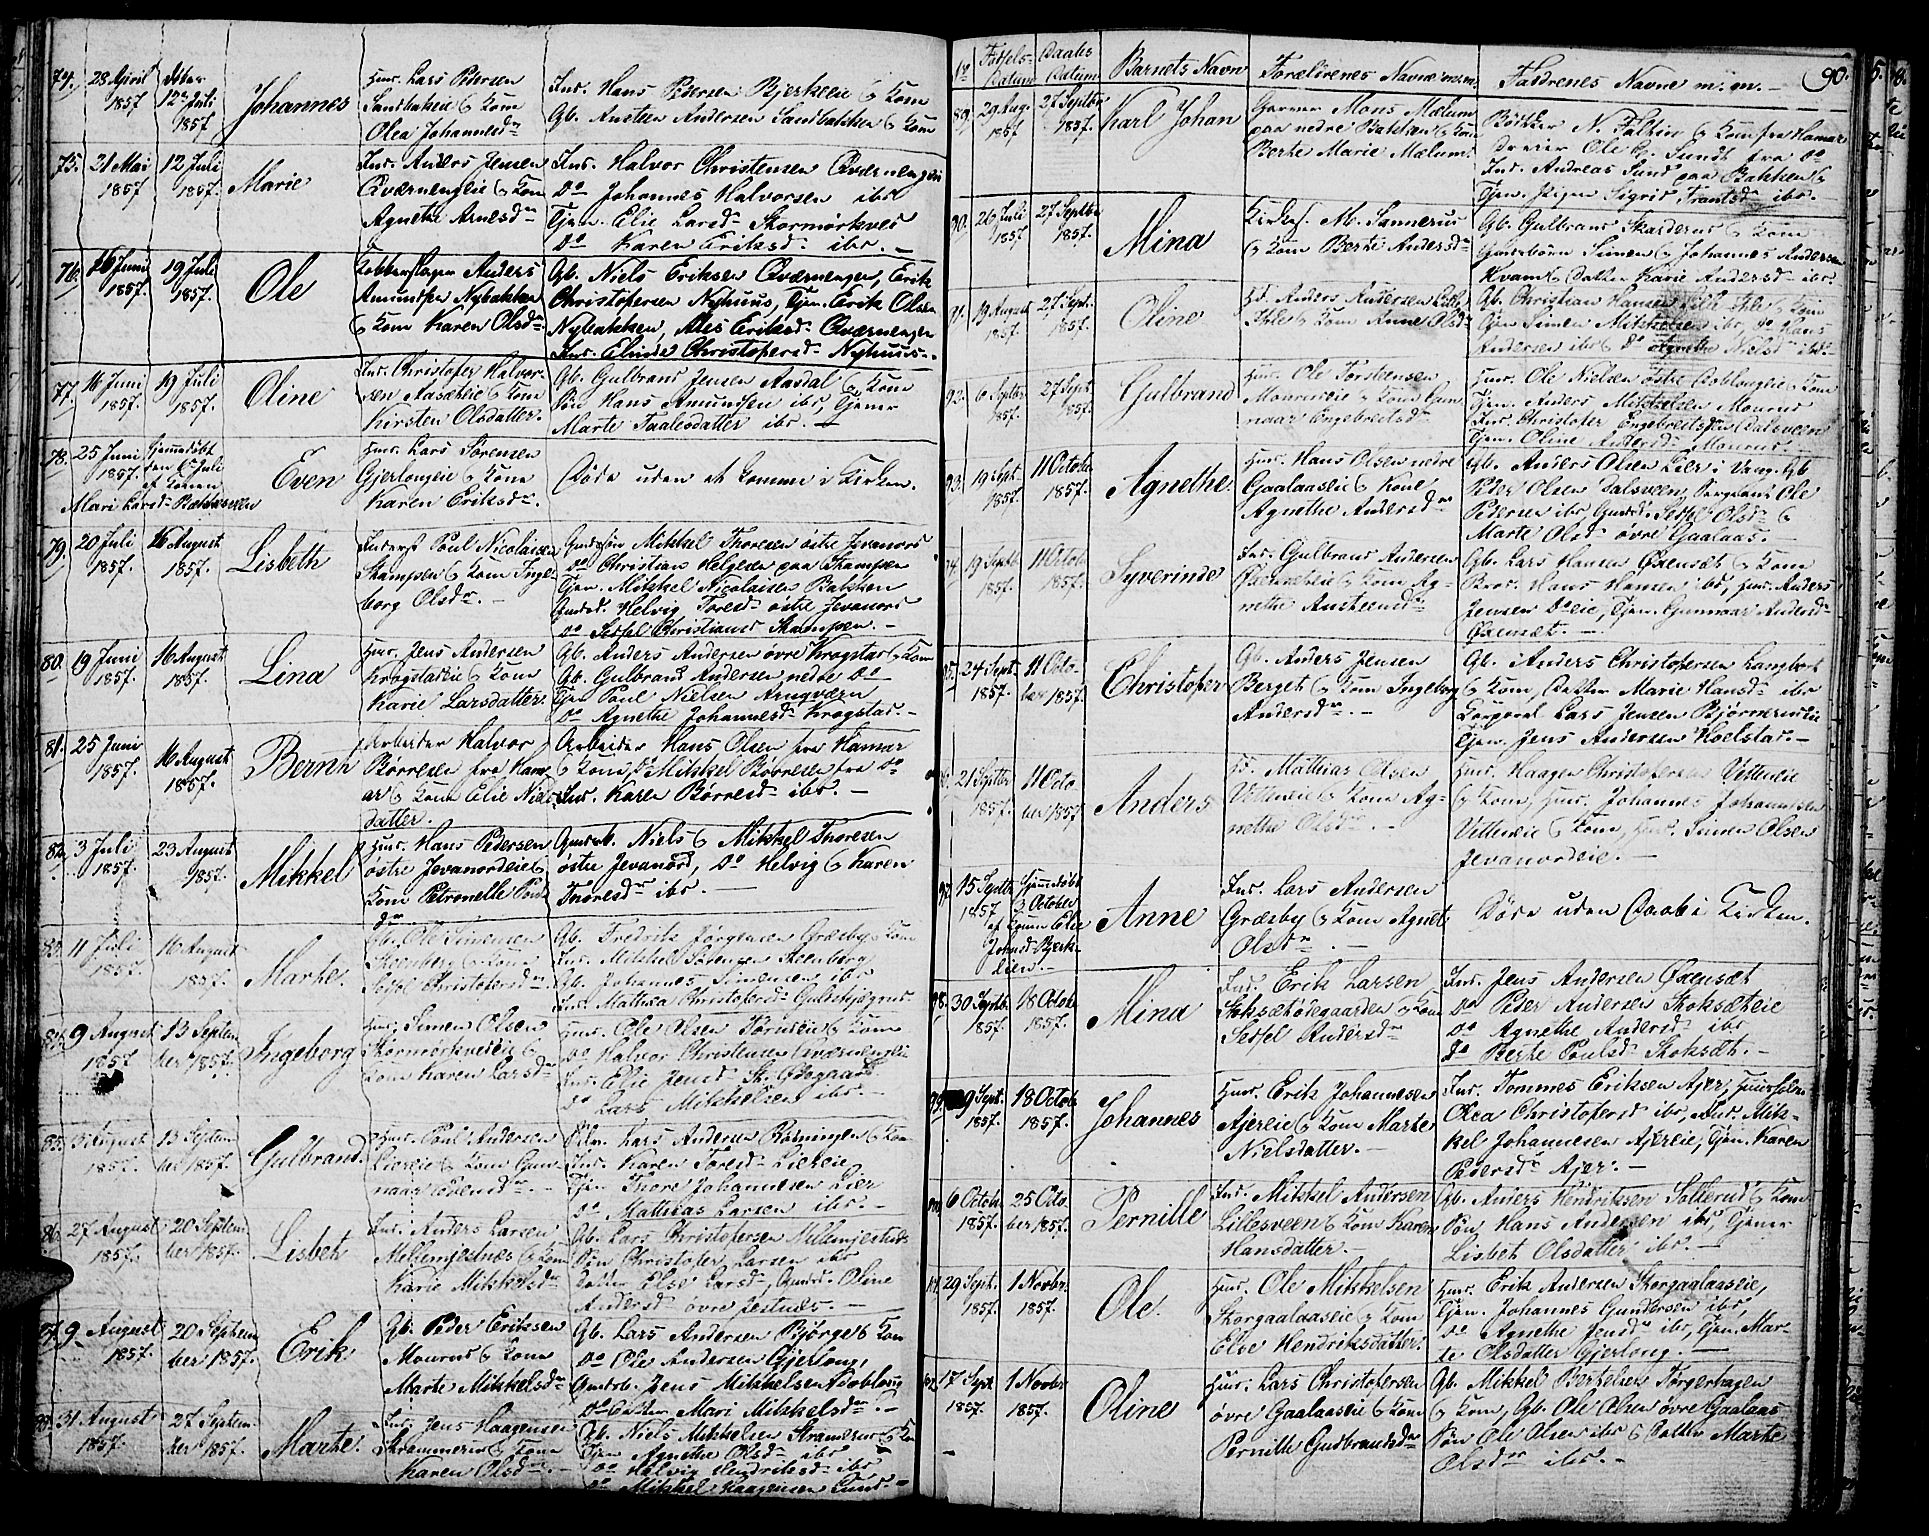 74. 28 April 1857. 12te Juli 1857. Johannes
Huus. Lars Pedersen
Sandbakeie & Kone
Olea Johannesdr
Ins. Hans Pedersen Bjerkeeie & Kone
Gb. Austeen Andersen Sandbakken & Kone
75. 21 Mai 1857 12 Juli 1857. Marie
Ins. Anders Jensen
Qværnengeie & Kone
Agnethe Arnesdr
Ins. Halvor Christensen Qværnengeie
Do Johannes Halvorsen ibr
Tjen. Elie Larsdr Skormørkved
Do Karen Eriksdr ibr. —
76. 16 Juni 1857. 19 Juli 1857. Ole
Kobberslager Anders
Amundsen Nybakken
& Kone Karen Olsdr
Gb. Niels Eriksen Qværnengen, Erik
Christophersen Nyhuus, Tjen. Erik Olsen
Nybakken, Ales Eriksdr Qværnengen
Ins. Elinde Christophersdr Nyhuus. —
77. 16 Juni 1857. 19 Juli 1857. Oline
Ins. Christofer Halvor-
sen Aasæteie & Kone
Kirsten Olsdatter.
Gb. Gulbrand Jensen Aasdal & Kone
Søn Hans Amundsen ibr, Tjener
Marte Paalesdatter ibr. —
78. 25 Juni 1857. Hjemmedøbt
den 6 Juli
af Konen
Mari Larsdr Bakkesveen Even
Huus. Lars Sørensen
Gjerlougeie & Kone
Karen Eriksdr.
Døde uden at komme i Kirken.
79. 20 Juli 1857. 16 August 1857. Lisbeth
Inderst Poul Nicolaisen
Stampen & Kone Inge-
borg Olsdr. —
Gmdssøn Mikkel Thoresen østre Jevanord
Do Christian Helgesen paa Stampen
Tjen. Mikkel Nicolaisen Bakken
Gmdsd. Helvig Toresdr østre Jevanord
Do Sidsel Christiansd Stampen. —
80. 19 Juni 1857. 16 August 1857. Lina
Huus. Jens Andersen
Krogstadeie & Kone
Karie Larsdatter.
Gb. Anders Andersen øvre Krogstad & Kone
Gb. Gulbrand Andersen nedre Do
Tjen Poul Nielsen Arnqværn
Do Agnethe Johannesdr Krogstad. —
81. 25 Juni 1857. 16 August 1857. Bernh
Arbeider Halvor
Børresen fra Ham-
ar & Kone Elie Niels-
datter.
Arbeider Hans Olsen fra Hamar
& Kone, Do Mikkel Børresen fra Do
Ins. Karen Børresdr ibr. —
82. 3 Juli 1857. 23 August 1857. Mikkel
Huus. Hans Pedersen
østre Jevanordeie &
Kone Petronelle Pouls-
dr
Gmdsb. Niels & Mikkel Thoresen
østre Jevanord, Do Helvig & Karen
Thoresdr ibr. —
83. 11 Juli 1857. 16 August 1857. Marthe.
Gb. Ole Simensen
Steenberg & Kone
Sidsel Christofersdr
Gb. Fredrik Jørgensen Græsby & Kone
Ins. Mikkel Sørensen Steenberg
Gb. Johannes Simensen ibr
84. 9 August 1857 13 Septem-
ber 1857. Ingeborg
Huus. Simen Olsen
Skormørkvedeie &
Kone Karen Larsdr
Huus. Ole Olsen & Kone
Do Halvor Christensen Qværnengeie
Ins. Elie Jensd
Do Lars Mikkelsen ibr. —
85. August 1857. 13 Septem-
ber 1857. Gulbrand
Huus. Poul Andersen
Liereie & Kone Gun-
naar Evensdr. —
Lars Andersen & Kone
Ins. Karen Toresdr Liereie
Tjen Thore Johannesen Lier
Do Mathias Larsen ibr. —
86. 27 August 1857. 20 Septem-
ber 1857. Lisbet
Ins. Anders Larsen,
& Kone
Karie Mikkelsdr
Gb. Lars Christofersen
Søn Christofer Larsen ibr
Datter Else Larsd, Gmdsd. Oline
Andersd øvre Jestnæs. —
87. 9. August 1857. 20 Septem-
ber 1857. Erik
Gb. Peder Eriksen
Maurud & Kone
Marte Mikkelsdr
Gb. Lars Andersen Bjørge & Kone
Do Ole Andersen Gjerloug,
Gmdsb. Jens Mikkelsen
Do Datter Mari Mikkelsdr. —
88. 31. August 1857. 27 Septem-
ber 1857. Marthe.
Ins. Jens Haagensen
Strammerud & Kone
Karen Olsdr. —
Gb. Niels Mikkelsen Strammerud & Kone
Tjen Agnethe Olsdr ibr
Do Helvig Hendriksdr ibr
Do Mikkel Haagensen Sund. =
No Fødsels-Datum Daabs Datum Barnets Navn Forældrenes Navne m.m. Faddrenes Navne m. m. — 90.
89. 29 Aug. 1857 27 Septbr 1857. Karl Johan
Garver Mons Mælum
paa nedre Bakken & Kone
Berthe Marie Mælum.
Bødker N. Faltin & Kone fra Hamar
Dreier Ole G. Sundt fra Do
Ins. Andreas Sund paa Bakken &
Tjen. Pigen Sigrid Frantsdr ibr.
90. 26 Juli 1857. 27 Septbr 1857. Mina
Kirkes. M. Sannerud
& Kone Berthe Andersdr
Gb. Gulbrand Skarderud & Kone
Gmdsbørn Simen & Johannes Andersen
Kvam & Datter Karie Andersdr ibr.
91. 19 August 1857. 27 Sept. 1857. Oline
Anders Andersen Lille
Ihle & Kone Anne Olsdr
Gb. Christian Hansen Lille Ihle & Kone
Tjen Simen Mikkelsen ibr, do Hans
Andersen ibr & Do Agnethe Nielsdr ibr. —
92. 6 Septbr 1857. 27 Sept. 1857. Gulbrand
Huus. Ole Torstensen
Maurudeie & Kone Gun-
naar Engebretsdr
Huus. Ole Nielsen østre & Kone
Tjen. Anders Mikkelsen Maurud
Ins. Christofer Engebretsen Dalsveen
Tjen. Oline Andersdr Maurud.
93. 19 Sept. 1857. 11 October 1857. Agnethe.
Huus. Hans Olsen nedre
Gaalaaseie & Kone
Agnethe Andersdr
Gb. Anders Olsen Lier i Vang. Gb
Peder Olsen Dalsveen, Sergeant Ole
Pedersen ibr, Gmdsd. Sidsel Olsdr &
Marte Olsd øvre Gaalaas. —
94. 19 Septbr 1857. 11 Octob 1857. Syverinde
Ins. Gulbrand Andersen
& Kone Ag-
nethe Austeensdr
Gb. Lars Hansen Øxensæt & Kone
Broder Hans Hansen ibr, Huus. Anders
Jensen Do eie, Tjen. Gunnaar Andersdr
Øxensæt. —
95. 24 Sept 1857. 11 Octo-
ber 1857. Christofer
Gb. Anders Jensen
Berget & Kone Ingeborg
Andersdr. —
Gb. Anders Christofersen Langbert
& Kone, Datter Marie Hansdr ibr
Corporal Lars Jensen Bjørnerudeie
Tjen. Jens Andersen Hoelstad. —
96. 21 Septbr 1857. 11 Octo-
ber 1857 Anders
Mathias Olsen
Vitteneie & Kone Ag-
nethe Olsdr. —
Huus. Haagen Christofersen Vitteneie
& Kone, Huus. Johannes Johannesen
Vitteneie & Kone, Huus. Simen Olsen
Jevanordeie. —
97. 15 Septbr 1857 Hjemmedøbt
3 October
af Konen Elie
Johnsdr Bjerk-
eien. — Anne
Ins. Lars Andersen
Græsby & Kone Agnet
Olsdr. —
Døde uden Daab i Kirken.
98. 30 Septbr. 1857. 18 Octob 1857. Mina
Ins. Erik Larsen
Stoksætødegaarden & Kone
Sidsel Andersdr
Ins. Jens Andersen Øxensæt
Do Peder Andersen Stoksæteie
Do Agnethe Andersd ibr
Do Berthe Poulsdr Stoksæt. —
99. 9 Sept. 1857. 18 Octob 1857. Johannes
Huus. Erik Johannesen
Ajereie & Kone Marte
Nielsdatter. —
Ins. Tommes Eriksen Ajer, Huusholder
Olea Christofersd ibr, Ins. Mik-
kel Johannesen Ajereie, Tjen. Karen
Pedersdr Ajer. —
100. 6 Octob 1857. 25 Octo-
ber 1857. Pernille
Ins. Mikkel Andersen
Lillesveen & Kone Karen
Hansdatter. —
Gb. Anders Hendriksen Sollerud & Kone
Søn Hans Andersen ibr, Tjener
Lisbet Olsdatter ibr. —
101. 29 Sept. 1857. 1 Novbr. 1857. Ole.
Huus. Ole Mikkelsen
Skorgaalaaseie & Kone
Else Hendriksdatter.
Huus. Erik Andersen Skorgaalaaseie,
Tjen. Johannes Gundersen ibr
Do Agnethe Jensdr ibr, Tjen. Mar-
te Olsdatter Gjerloug. —
102. 17 Septr 1857. 1 Novbr 1857. Oline
Huus. Lars Christofersen
øvre Gaalaaseie & Kone
Pernille Gudbrandsdr
Gb. Mikkel Berthelsen Torgerhagen
& Kone, Gb. Ole Olsen øvre Gaalaas
Søn Ole Olsen ibr & Datter Marte
Olsdr ibr. —